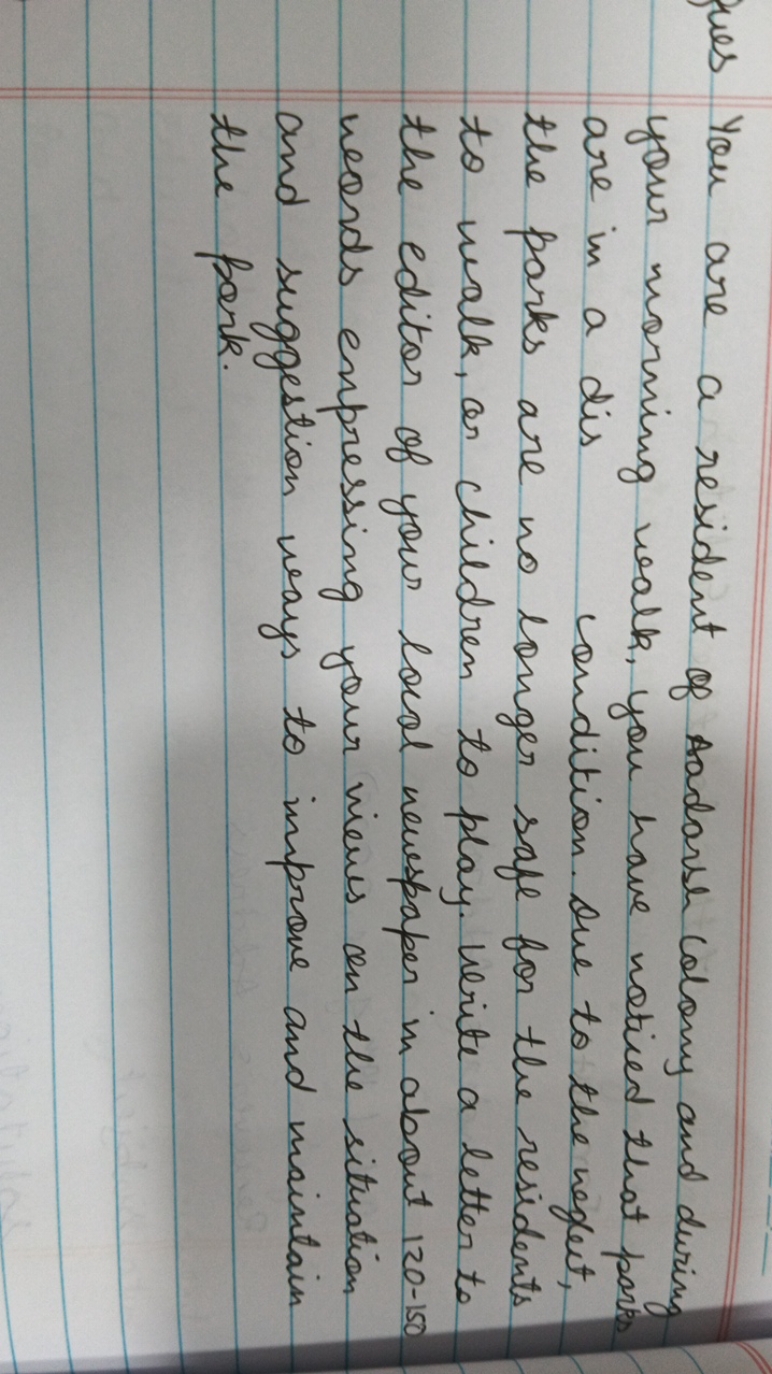 Ques You are a resident of Aadarsh colony and during
your morning walk, you have noticed that parks
are in a dis condition. Due to the neglect,
the parks are no longer safe for the residents
to walk, or children to play. Write a letter to
the editor of your local newspaper in about 120-150
words expressing your views on the situation
and suggestion ways to improve and maintain
the park.